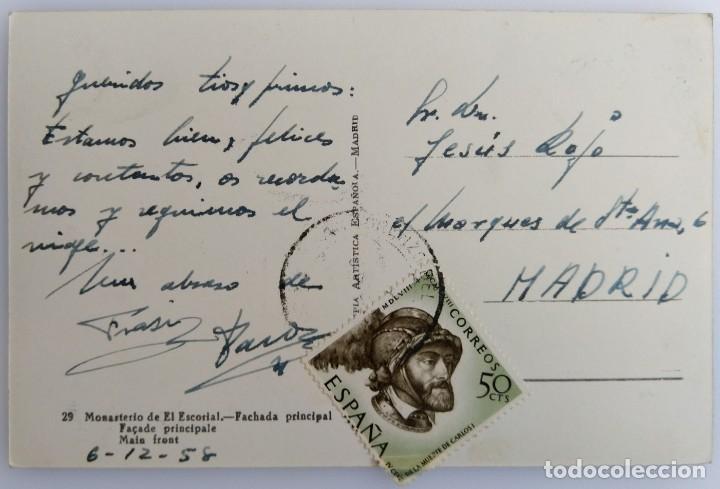 Queridos tios y primos:
Estamos bien, felices
y contentos, os recorda-
mos y seguimos el
viaje...
Un abrazo de
Sr. Dn.
Jesús Rojo
c/ Marques de Sta Ana, 6
MADRID
ARTÍSTICA ESPAÑOLA.—MADRID
MDLVIII
CORREOS
50 CTS
ESPAÑA
IV CENT. DE LA MUERTE DE CARLOS I
29 Monasterio de El Escorial.—Fachada principal
Façade principale
Main front
6-12-58
todocoleccion.net